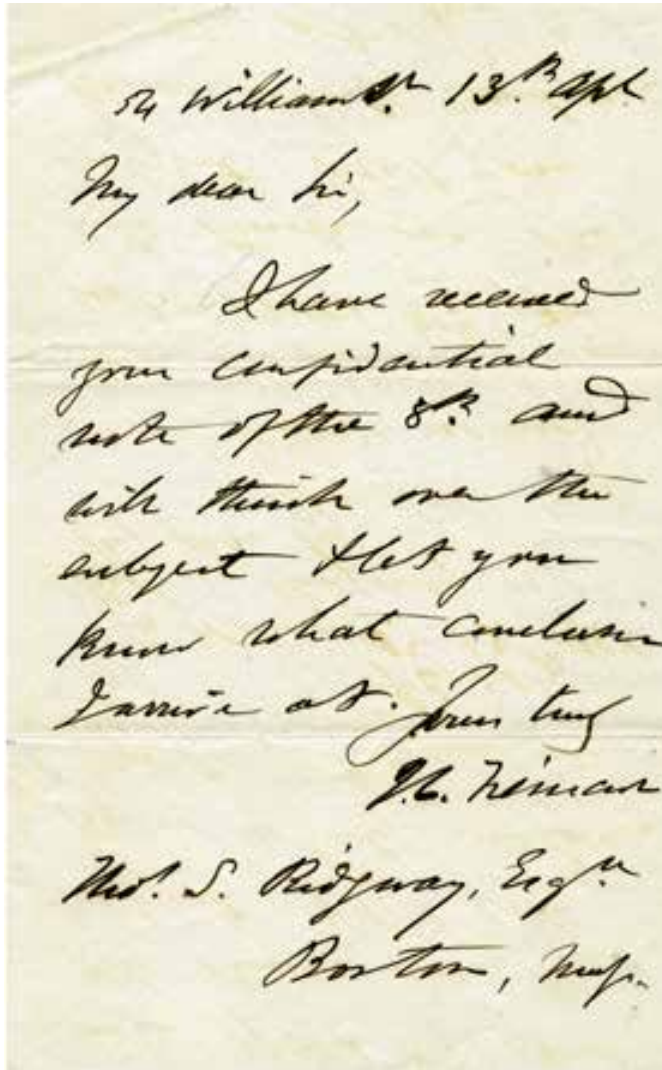 54 William St. 13th Apl
My dear Sir,
I have received
your confidential
note of the 8th and
will think over the
subject & let you
know what conclusion
I arrive at. Yours truly
J.C. Frémont
Thos. S. Ridgway, Esqre
Boston, Mass.